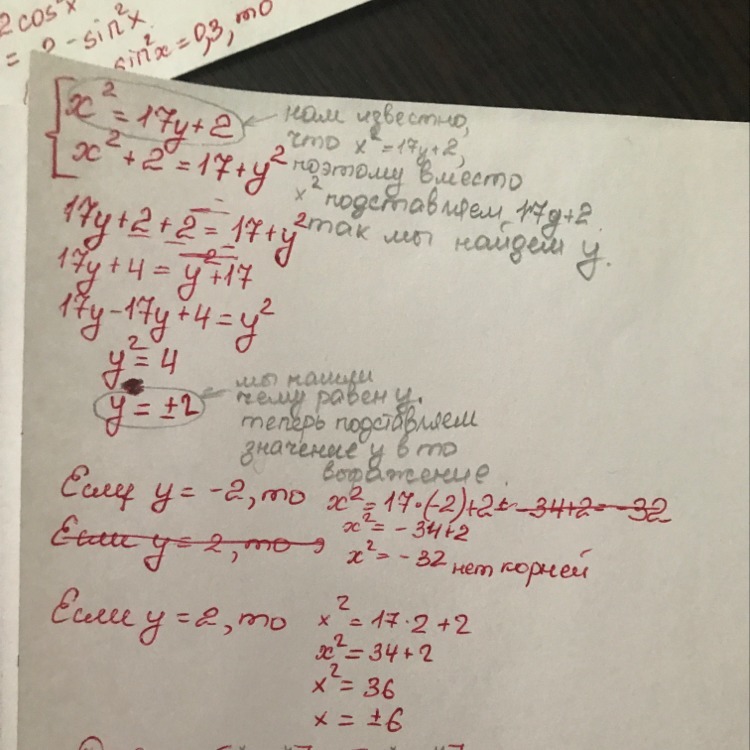 2cos²x
= 2 - sin²x
sin²x = 0,3, то
x² = 17y + 2
x² + 2 = 17 + y²
нам известно,
что x² = 17y + 2,
поэтому вместо
x² подставляем 17y + 2.
так мы найдем y.
17y + 2 + 2 = 17 + y²
17y + 4 = y² + 17
17y - 17y + 4 = y²
y² = 4
y = ±2
мы нашли
чему равен y.
теперь подставляем
значение y в то
выражение.
Если y = -2, то x² = 17·(-2) + 2 = -34 + 2 = -32
x² = -34 + 2
Если y = 2, то
x² = -32 нет корней
Если y = 2, то x² = 17·2 + 2
x² = 34 + 2
x² = 36
x = ±6